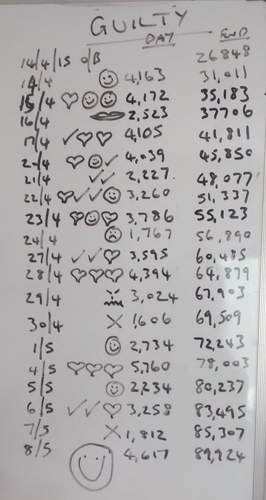 GUILTY
DAY END
14/4/15 O/B 26848
14/4 4,163 31,011
15/4 4,172 35,183
16/4 2,523 37706
17/4 4,105 41,811
20/4 4,039 45,850
21/4 2,227. 48,077
22/4 3,260 51,337
23/4 3,786 55,123
24/4 1,767 56,890
27/4 3,595 60,485
28/4 4,394 64,879
29/4 3,024 67,903
30/4 1,606 69,509
1/5 2,734 72,243
4/5 5,760 78,003
5/5 2,234 80,237
6/5 3,258 83,495
7/5 1,812 85,307
8/5 4,617 89,924